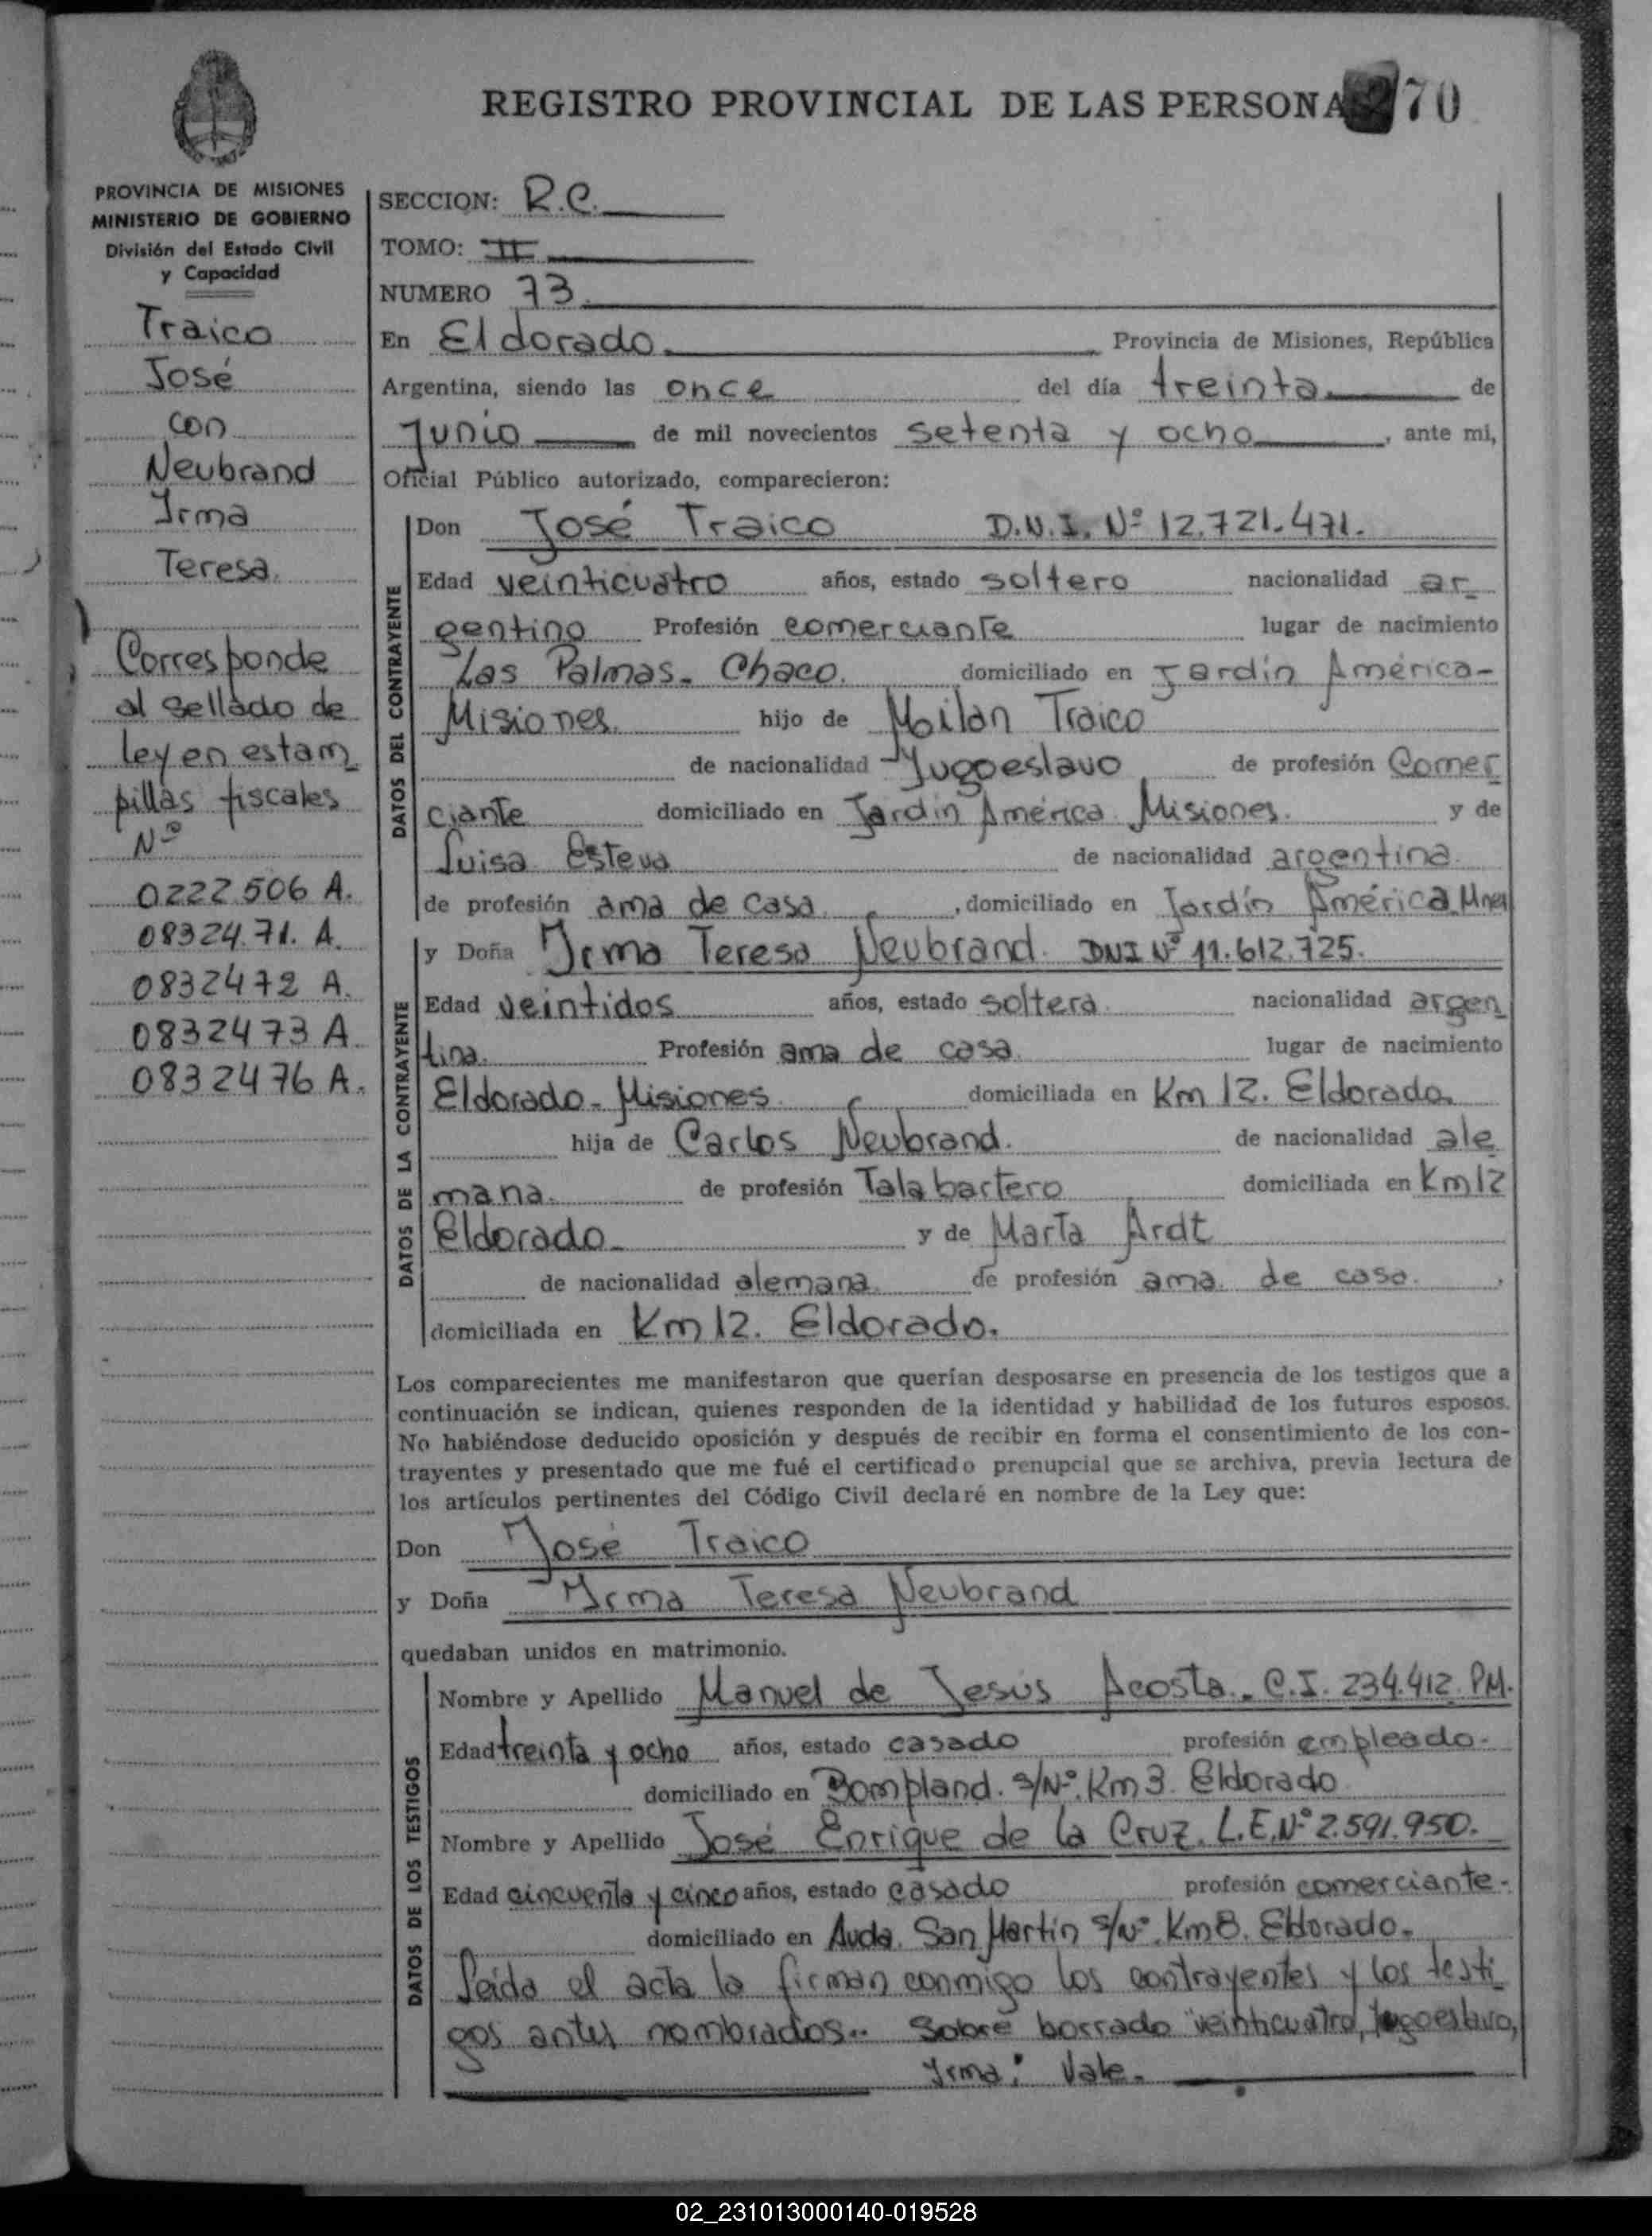 REGISTRO PROVINCIAL DE LAS PERSONA 270
PROVINCIA DE MISIONES
MINISTERIO DE GOBIERNO
División del Estado Civil
y Capacidad
Traico
José
con
Neubrand
Irma
Teresa.
Corresponde
al sellado de
ley en estam
pillas fiscales
Nº
0222506 A.
0832471. A.
0832472 A.
0832473 A.
0832476 A.
SECCION: R.C.
TOMO: II
NUMERO 73.
En Eldorado. Provincia de Misiones, República
Argentina, siendo las once del día treinta de
Junio de mil novecientos setenta y ocho, ante mi,
Oficial Público autorizado, comparecieron:
DATOS DEL CONTRAYENTE
Don José Traico D.N.I. Nº 12.721.471.
Edad veinticuatro años, estado soltero nacionalidad ar
gentino Profesión comerciante lugar de nacimiento
Las Palmas - Chaco. domiciliado en Jardín América-
Misiones. hijo de Moilan Traico
de nacionalidad Yugoeslavo de profesión Comer
ciante domiciliado en Jardín América Misiones. y de
Luisa Esteva de nacionalidad argentina.
de profesión ama de casa, domiciliado en Jardín América Mnes
DATOS DE LA CONTRAYENTE
y Doña Irma Teresa Neubrand. DNI Nº 11.612.725.
Edad veintidos años, estado soltera. nacionalidad argen
tina. Profesión ama de casa. lugar de nacimiento
Eldorado - Misiones domiciliada en Km 12. Eldorado.
hija de Carlos Neubrand. de nacionalidad ale
mana. de profesión Talabartero domiciliada en Km 12
Eldorado. y de Marta Ardt
de nacionalidad alemana. de profesión ama de casa. ,
domiciliada en Km 12. Eldorado.
Los comparecientes me manifestaron que querían desposarse en presencia de los testigos que a
continuación se indican, quienes responden de la identidad y habilidad de los futuros esposos.
No habiéndose deducido oposición y después de recibir en forma el consentimiento de los con-
trayentes y presentado que me fué el certificado prenupcial que se archiva, previa lectura de
los artículos pertinentes del Código Civil declaré en nombre de la Ley que:
Don José Traico
y Doña Irma Teresa Neubrand
quedaban unidos en matrimonio.
DATOS DE LOS TESTIGOS
Nombre y Apellido Manuel de Jesús Acosta. C.I. 234.412 PM.
Edad treinta y ocho años, estado casado profesión empleado.
domiciliado en Bompland. S/Nº. Km 3. Eldorado
Nombre y Apellido José Enrique de la Cruz. L.E. Nº 2.591.950.
Edad cincuenta y cinco años, estado casado profesión comerciante.
domiciliado en Avda. San Martín S/Nº. Km 8. Eldorado.
Leída el acta la firman conmigo los contrayentes y los testi
gos antes nombrados.. Sobre borrado "veinticuatro, Yugoeslavo,
Irma": Vale.
02_231013000140-019528